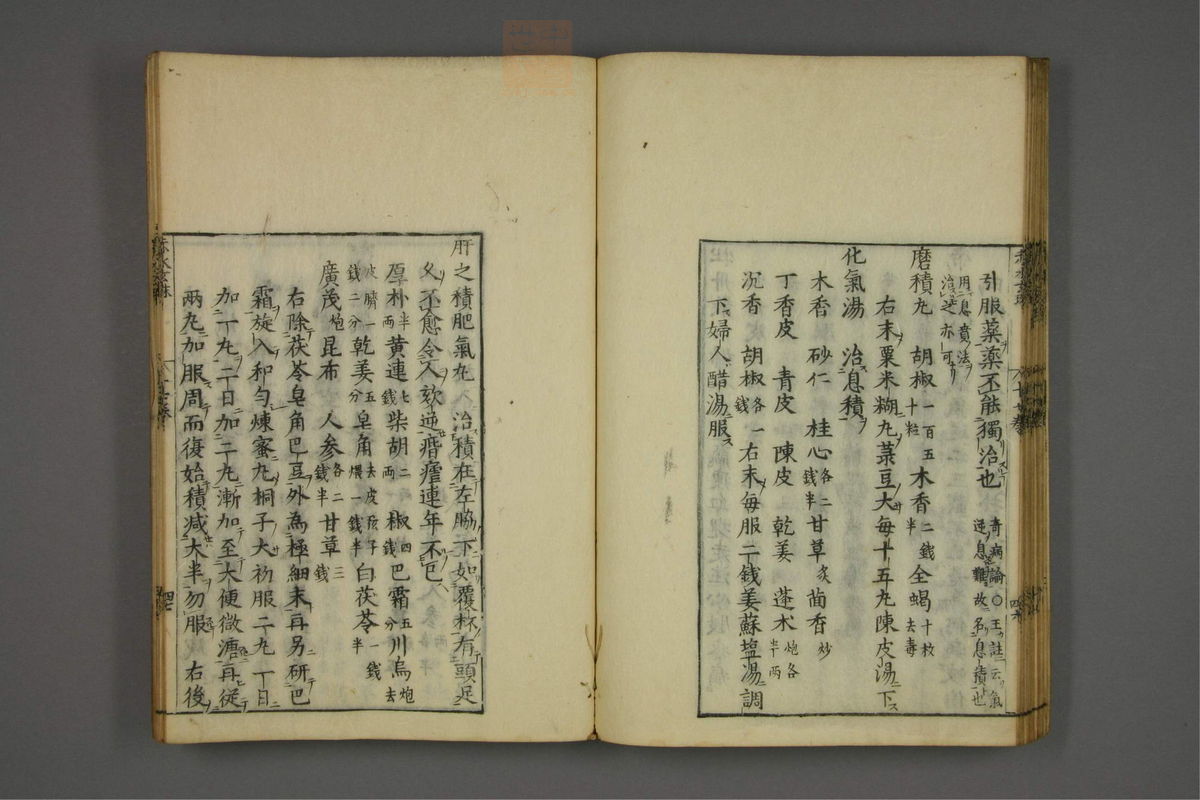 引服薬薬不能獨治也 奇病論〇王註云氣逆息難故名息積也
用息賁法治之亦可
磨積丸 胡椒一百五十粒木香二錢半全蝎十枚去毒
右末粟米糊丸菉豆大每十五丸陳皮湯下
化氣湯 治息積
木香 砂仁 桂心各二錢半甘草炙茴香炒
丁香皮 青皮 陳皮 乾姜 蓬朮炮各半両
沉香 胡椒各一錢右末每服二錢姜蘇塩湯調
下婦人醋湯服
肝之積肥氣丸 治積在左脇下如覆杯有頭足
久不愈令人欬逆痎瘧連年不已
厚朴半両黄連七錢柴胡二両椒四錢巴霜五分川烏炮去
皮臍一錢二分乾姜五分皂角去皮弦子煨一錢半白茯苓一錢半
廣茂炮昆布 人参各二錢半甘草三錢
右除茯苓皂角巴豆外為極細末再另研巴
霜旋入和勻煉蜜丸桐子大初服二丸一日
加一丸二日加二丸漸加至大便微溏再従
兩丸加服周而復始積减大半勿服 右後